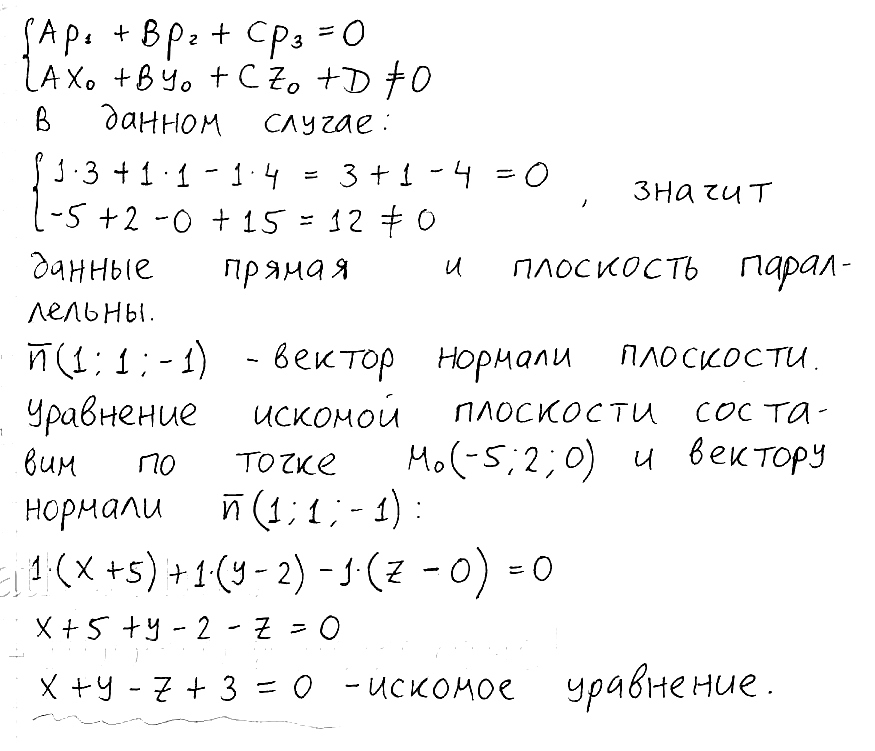 {Ap₁ + Bp₂ + Cp₃ = 0
{Ax₀ + By₀ + Cz₀ + D ≠ 0
в данном случае:
{1·3 + 1·1 - 1·4 = 3 + 1 - 4 = 0
{-5 + 2 - 0 + 15 = 12 ≠ 0 , значит
данные прямая и плоскость парал-
лельны.
n̅(1; 1; -1) - вектор нормали плоскости.
Уравнение искомой плоскости соста-
вим по точке M₀(-5; 2; 0) и вектору
нормали n̅(1; 1; -1):
1·(x + 5) + 1·(y - 2) - 1·(z - 0) = 0
x + 5 + y - 2 - z = 0
x + y - z + 3 = 0 - искомое уравнение.